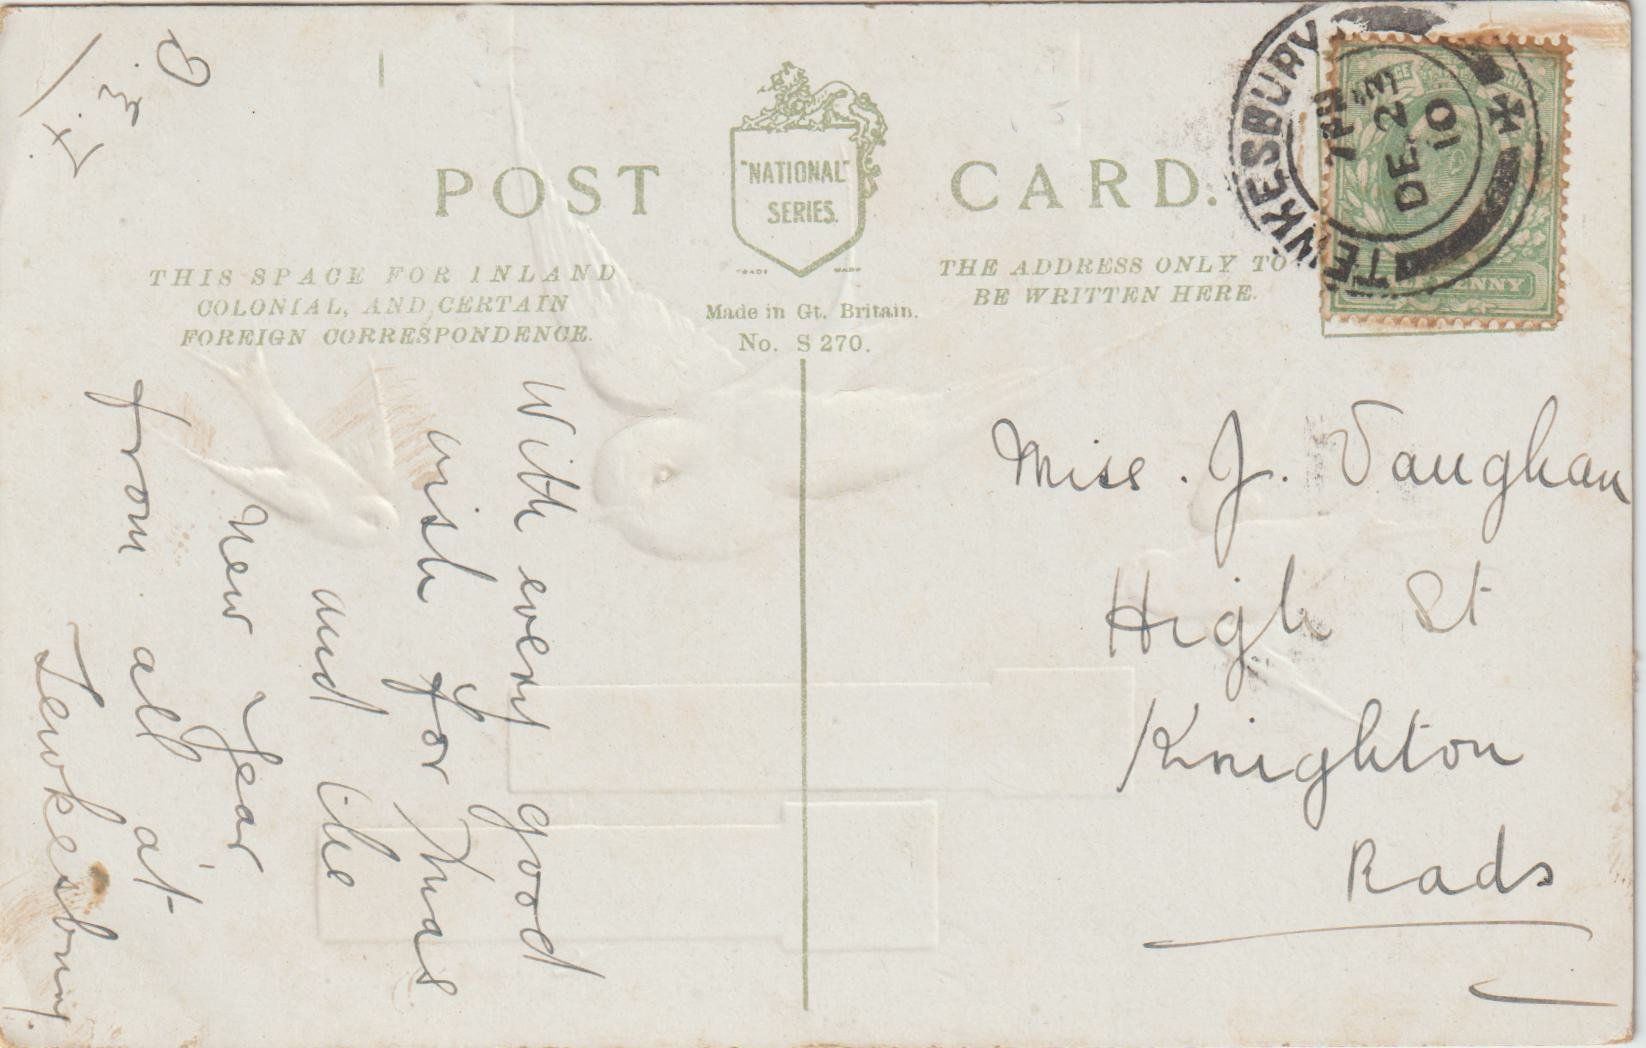 POST CARD.
"NATIONAL"
SERIES.
TRADE MARK
THIS SPACE FOR INLAND
COLONIAL, AND CERTAIN
FOREIGN CORRESPONDENCE.
Made in Gt. Britain.
No. S 270.
THE ADDRESS ONLY TO
BE WRITTEN HERE.
TEWKESBURY
7 PM
DE 23
10
With every good
wish for Xmas
and the
New Year
from all at
Tewkesbury.
Miss. J. Vaughan
High St
Knighton
Rads